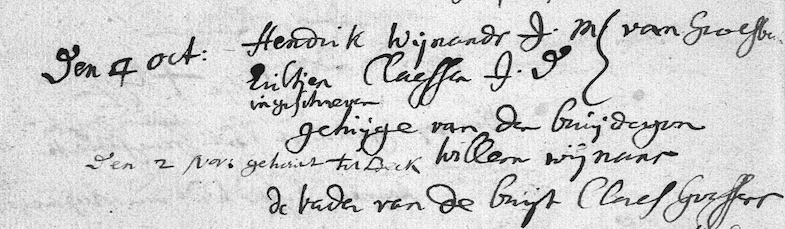 Den 4 oct: Hendrik Wijnands J. M. van Groesbe
Lijsien Claessen J. D
ingeschreven
getuijge van den bruijdegom
Den 2 nov: getrout tot Beek Willem wijnans
de vader van de bruijt Claes Goossens